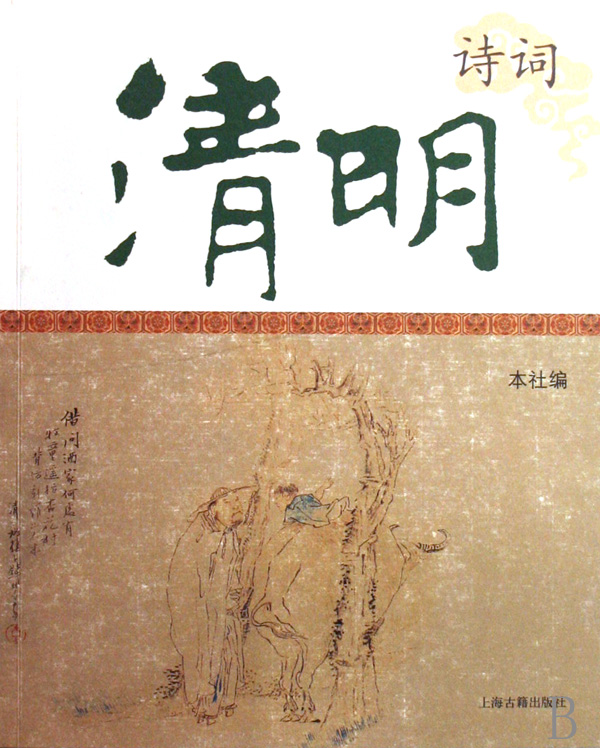 诗词
清明
本社编
借问酒家何处有
牧童遥指杏花村
上海古籍出版社
B